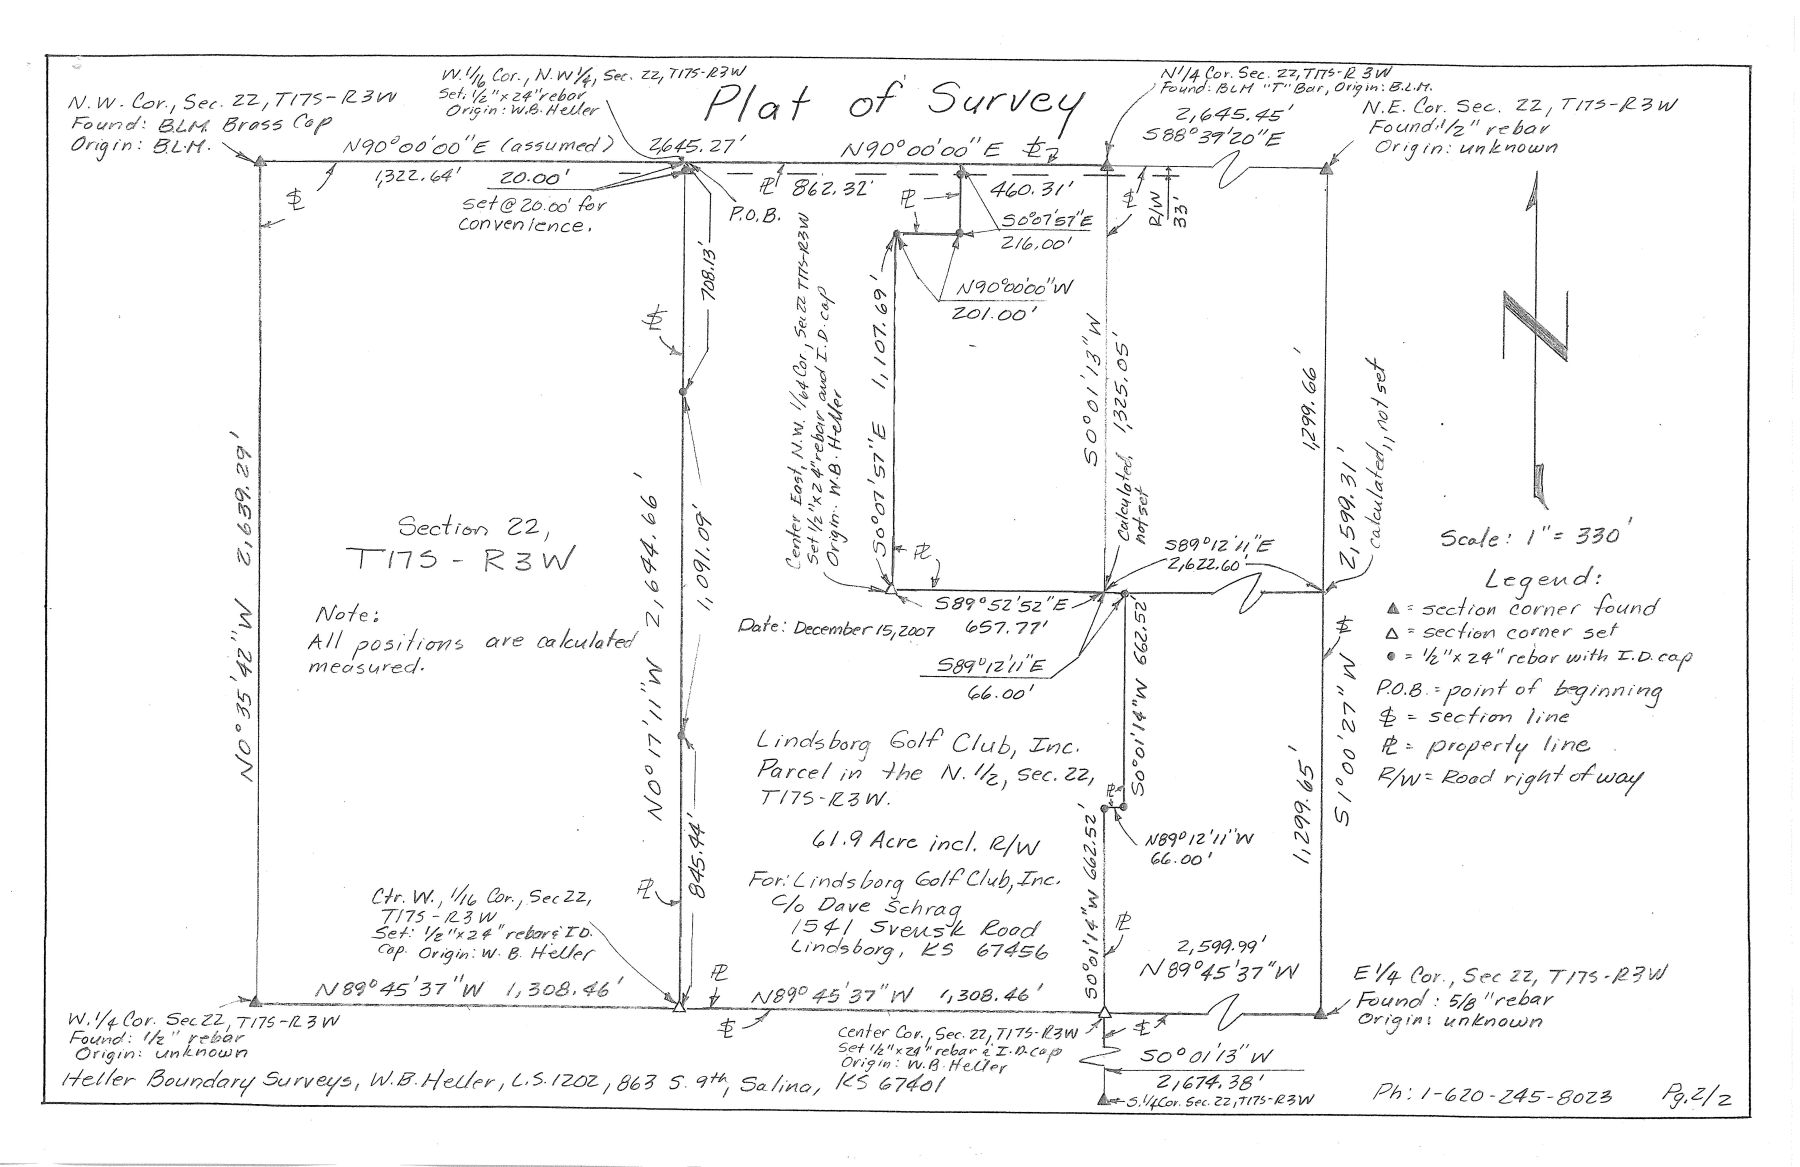 Plat of Survey
N.W. Cor., Sec. 22, T17S-R3W
Found: B.L.M. Brass Cap
Origin: B.L.M.
W.1/16 Cor., N.W 1/4, Sec. 22, T17S-R3W
Set: 1/2"x24" rebar
Origin: W.B. Heller
N1/4 Cor. Sec. 22, T17S-R3W
Found: BLM "T" Bar, Origin: B.L.M.
2,645.45'
S88°39'20"E
N.E. Cor. Sec. 22, T17S-R3W
Found: 1/2" rebar
Origin: unknown
N90°00'00"E (assumed) 2645.27' N90°00'00"E
1,322.64' 20.00' 862.32' 460.31'
set@20.00' for
convenience.
P.O.B.
S0°07'57"E
216.00'
R/W
33'
N90°00'00"W
201.00'
708.13'
1,091.09'
845.44'
N0°35'42"W 2,639.29'
N0°17'11"W 2,644.66'
Center East, N.W. 1/64 Cor., Sec 22 T17S-R3W
Set 1/2"x24" rebar and I.D. cap
Origin: W.B. Heller
S0°07'57"E 1,107.69'
S0°01'13"W 1,325.05'
Calculated,
not set
1,299.66'
S1°00'27"W 2,599.31'
calculated, not set
1,299.65'
Section 22,
T17S - R3W
Note:
All positions are calculated
measured.
S89°12'11"E
2,622.60'
S89°52'52"E
657.77'
Date: December 15, 2007
S89°12'11"E
66.00'
S0°01'14"W 662.52'
N89°12'11"W
66.00'
S0°01'14"W 662.52'
Lindsborg Golf Club, Inc.
Parcel in the N.1/2, sec. 22,
T17S-R3W.
61.9 Acre incl. R/W
For: Lindsborg Golf Club, Inc.
c/o Dave Schrag
1541 Svensk Road
Lindsborg, KS 67456
Scale: 1" = 330'
Legend:
▲ = section corner found
△ = section corner set
● = 1/2"x24" rebar with I.D. cap
P.O.B. = point of beginning
= section line
PL = property line
R/W = Road right of way
Ctr. W., 1/16 Cor., Sec 22,
T17S-R3W
Set: 1/2"x24" rebar & I.D.
cap. Origin: W.B. Heller
N89°45'37"W 1,308.46'
N89°45'37"W 1,308.46'
2,599.99'
N89°45'37"W
E1/4 Cor., Sec 22, T17S-R3W
Found: 5/8" rebar
Origin: unknown
W.1/4 Cor. Sec 22, T17S-R3W
Found: 1/2" rebar
Origin: unknown
center Cor., Sec. 22, T17S-R3W
Set 1/2"x24" rebar & I.D. cap
Origin: W.B. Heller
S0°01'13"W
2,674.38'
S.1/4 Cor. Sec. 22, T17S-R3W
Heller Boundary Surveys, W.B. Heller, L.S. 1202, 863 S. 9th, Salina, KS 67401
Ph: 1-620-245-8023 Pg. 2/2